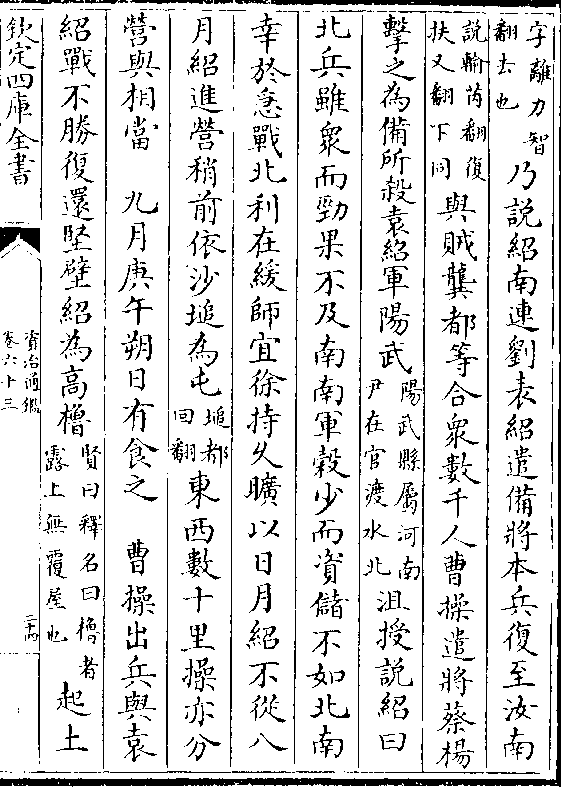 字離力智翻去也乃說紹南連劉表紹遣備將本兵復至汝南
說輸芮翻復扶又翻下同與賊龔都等合衆數千人曹操遣將蔡楊
擊之為備所殺袁紹軍陽武陽武縣屬河南尹在官渡水北沮授說紹曰
北兵雖衆而勁果不及南南軍穀少而資儲不如北南
幸於急戰北利在緩師宜徐持久曠以日月紹不從八
月紹進營稍前依沙塠為屯塠都回翻東西數十里操亦分
營與相當 九月庚午朔日有食之 曹操出兵與袁
紹戰不勝復還堅壁紹為高櫓賢曰釋名曰櫓者露上無覆屋也起土
欽定四庫全書
資治通鑑
卷六十三